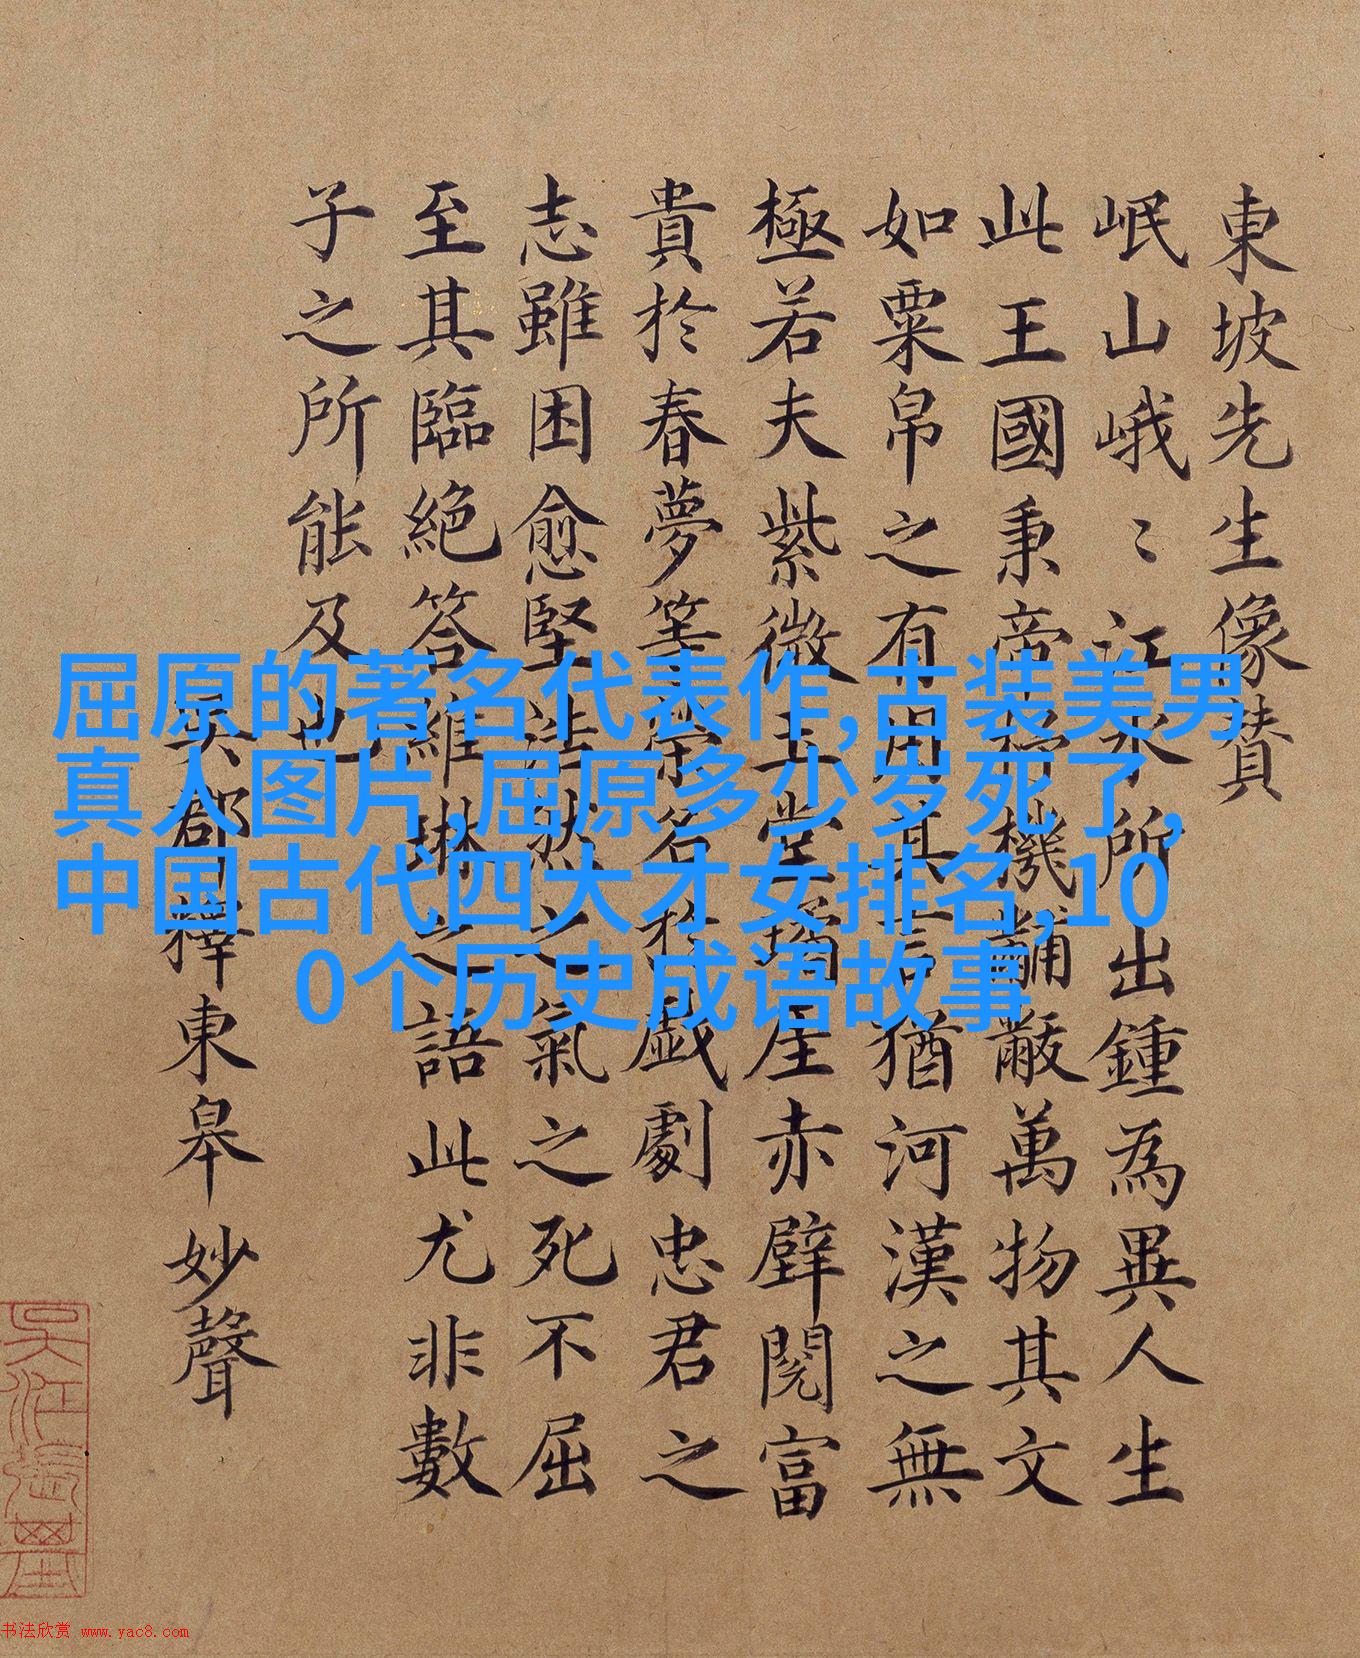 東坡先生像贊
岷山峨〻江水所出鍾為異人生
此王國秉帝杼機黼黻萬物其文
如粟帛之有用其言猶河漢之無
極若夫紫微玉堂瓊崖赤壁閱富
貴於春夢等榮名於戲劇忠君之
志雖困愈堅浩然之氣之死不屈
至其臨絕答維琳之語此尤非數
子之所能及也
吳郡釋東皋妙聲
屈原的著名代表作,古装美男
真人图片,屈原多少岁死了,
中国古代四大才女排名,10
0个历史成语故事
书法欣赏 www.yac8.com